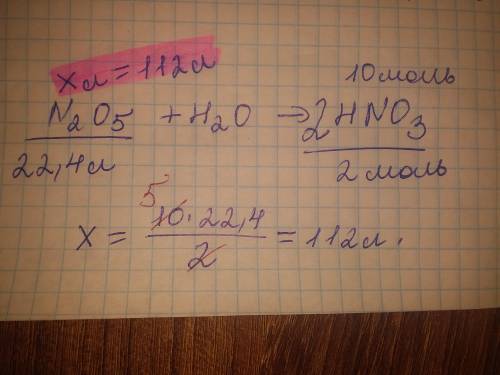 xл = 112л
10 моль
N₂O₅ + H₂O → 2HNO₃
22,4л
2 моль
5
X = 10·22,4 / 2 = 112л.